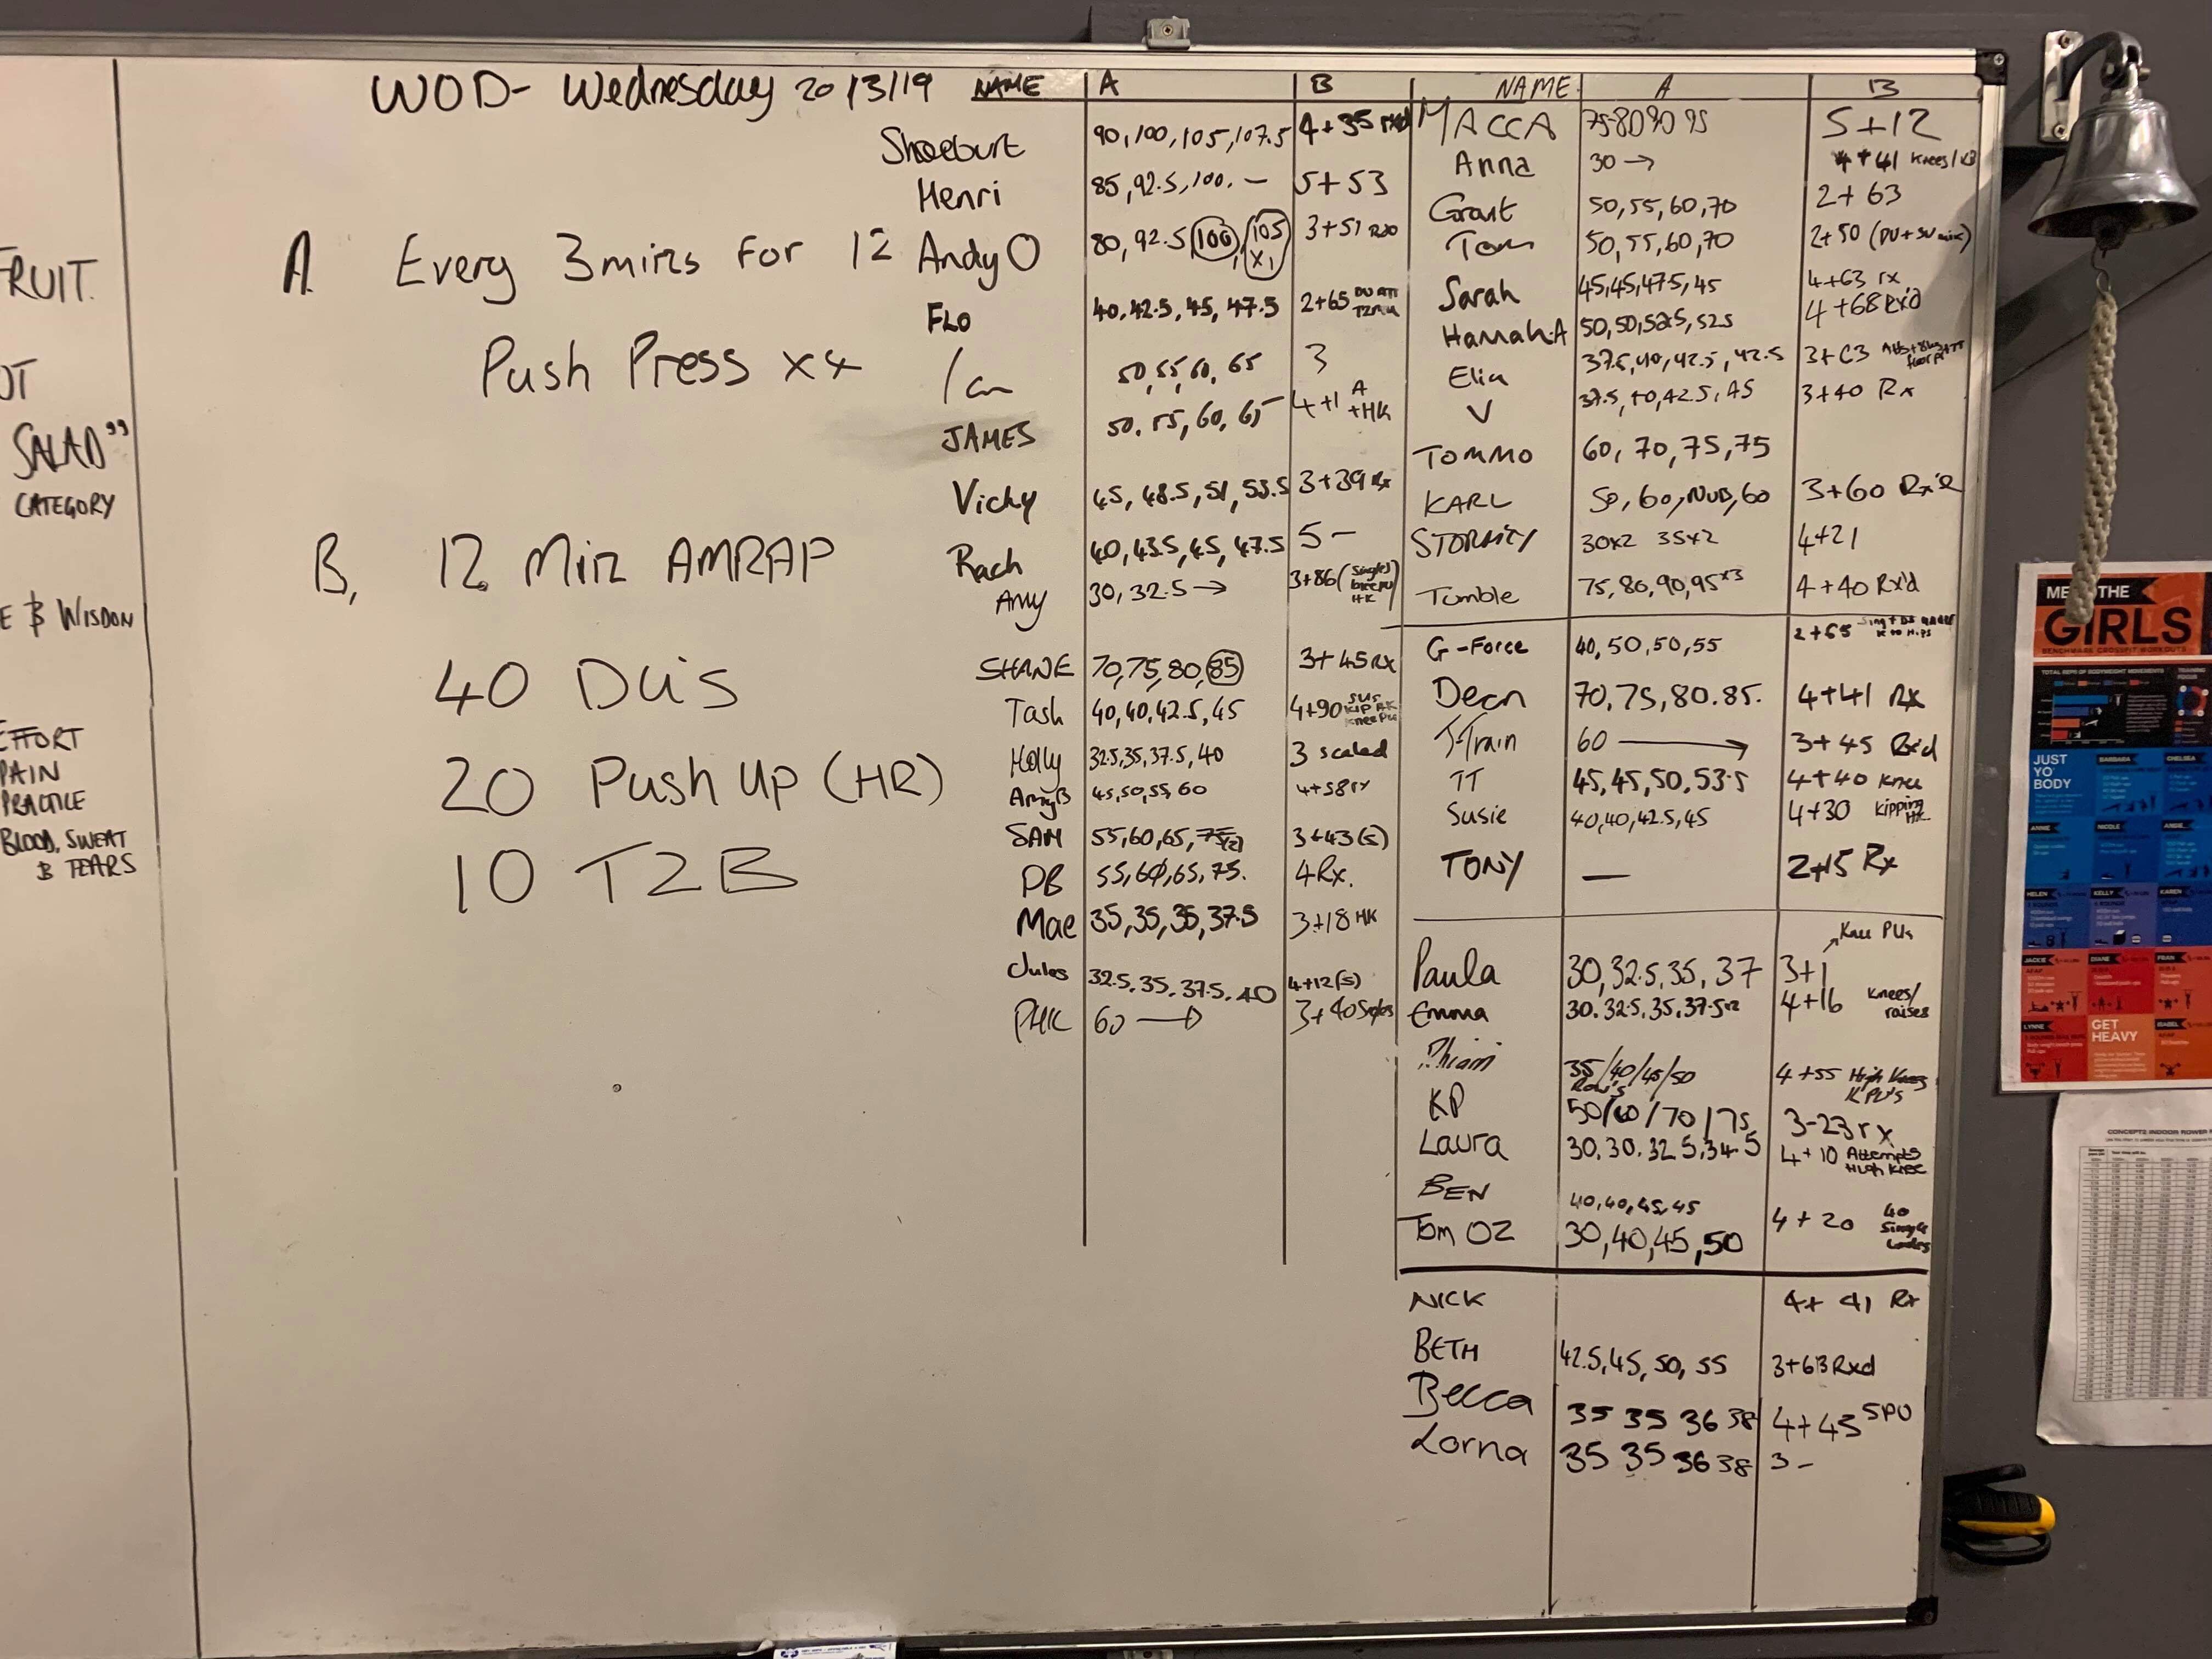 FRUIT.
SALAD"
CATEGORY
E & WISDON
EFFORT
PAIN
PRACTICE
BLOOD, SWEAT
& TEARS
WOD- Wednesday 20/3/19
A. Every 3mins for 12
Push Press x4
B, 12 Min AMRAP
40 DU's
20 Push Up (HR)
10 T2B
NAME A B
90, 100, 105, 107.5 4+35 rxd
Henri 85, 92.5, 100. — 5+53
Andy O 80, 92.5 100, 105 x1 3+51
FLO 40, 42.5, 45, 47.5 2+65
Ian 50, 55, 60, 65 3
JAMES 50, 55, 60, 65 4+1 A +HK
Vicky 45, 48.5, 51, 53.5 3+39 Rx
Rach 40, 43.5, 45, 47.5 5 -
Amy 30, 32.5 → 3+86 (Singles knee PU HK)
SHANE 70, 75, 80, 85 3+45 Rx
Tash 40, 40, 42.5, 45 4+90 SUS KIP HK Knee PU
Holly 32.5, 35, 37.5, 40 3 scaled
AmyB 45, 50, 55, 60 4+58 rx
SAM 55, 60, 65, 75(2) 3+43 (s)
PB 55, 60, 65, 75. 4 Rx.
Mae 35, 35, 35, 37.5 3+18 HK
Jules 32.5, 35, 37.5, 40 4+12 (s)
PHK 60 → 3+40
NAME A B
MACCA 75 80 90 95 5+12
Anna 30 → 4+41 Knees/KB
Grant 50, 55, 60, 70 2+63
Tom 50, 55, 60, 70 2+50 (DU+SU mix)
Sarah 45, 45, 47.5, 45 4+63 rx
Hannah.A 50, 50, 52.5, 52.5 4+68 Rx'd
37.5, 40, 42.5, 42.5
V 37.5, 40, 42.5, 45 3+40 Rx
TOMMO 60, 70, 75, 75
KARL 50, 60, 60 3+60 Rx'd
30x2 35x2 4+21
Tumble 75, 80, 90, 95x3 4+40 Rx'd
G-Force 40, 50, 50, 55 2+65
Dean 70, 75, 80. 85. 4+41 Rx
J-Train 60 → 3+45 Rx'd
TT 45, 45, 50, 53.5 4+40 knee
Susie 40, 40, 42.5, 45 4+30 Kipping HK
TONY — 2+15 Rx
Knee PUs
Paula 30, 32.5, 35, 37 3+1
Emma 30. 32.5, 35, 37.5x2 4+16 Knees/ raises
35/40/45/50 4+55 High Knees KPU's
KP 50/60/70/75 3-23 rx
Laura 30. 30. 32.5, 34.5 4+10 Attempts High Knee
BEN 40, 40, 45, 45
Tom OZ 30, 40, 45, 50 4+20 40 Single
NICK 4+41 Rx
BETH 42.5, 45, 50, 55 3+63 Rxd
Becca 35 35 36 38 4+43 SPU
Lorna 35 35 36 38 3 -
THE
GIRLS
BENCHMARK CROSSFIT WORKOUTS
JUST
YO'
BODY
BARBARA
CHELSEA
ANNIE
NICOLE
ANGIE
HELEN
KELLY
KAREN
JACKIE
DIANE
FRAN
LYNNE
GET
HEAVY
ISABEL
CONCEPT2 INDOOR ROWER